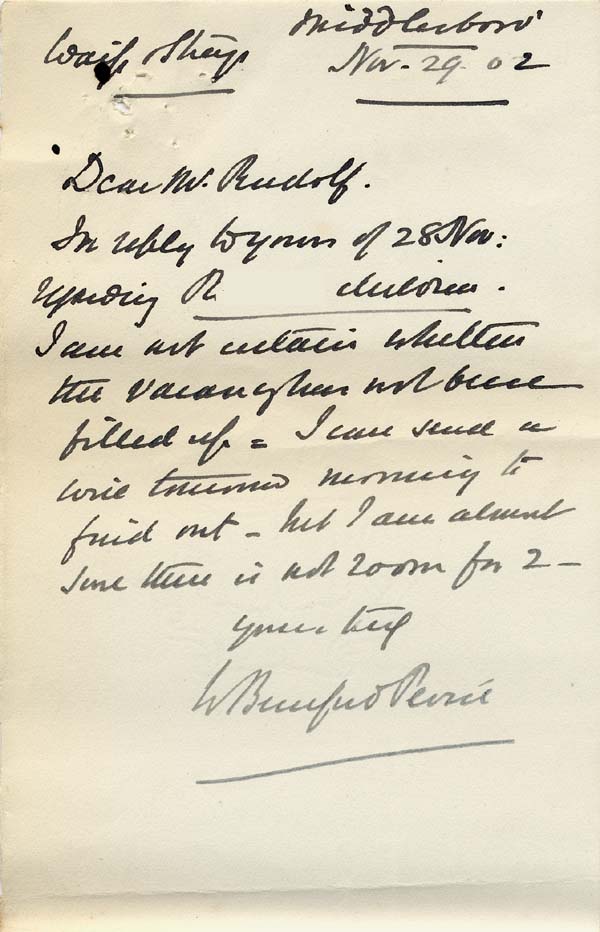 Middlesboro'
Waifs & Strays Nov. 29. 02
Dear Mr. Rudolf.
In reply to yours of 28 Nov:
regarding R children.
I am not certain whether
the vacancy has not been
filled up = I can send a
wire tomorrow morning to
find out - but I am almost
sure there is not room for 2 -
yours truly
W